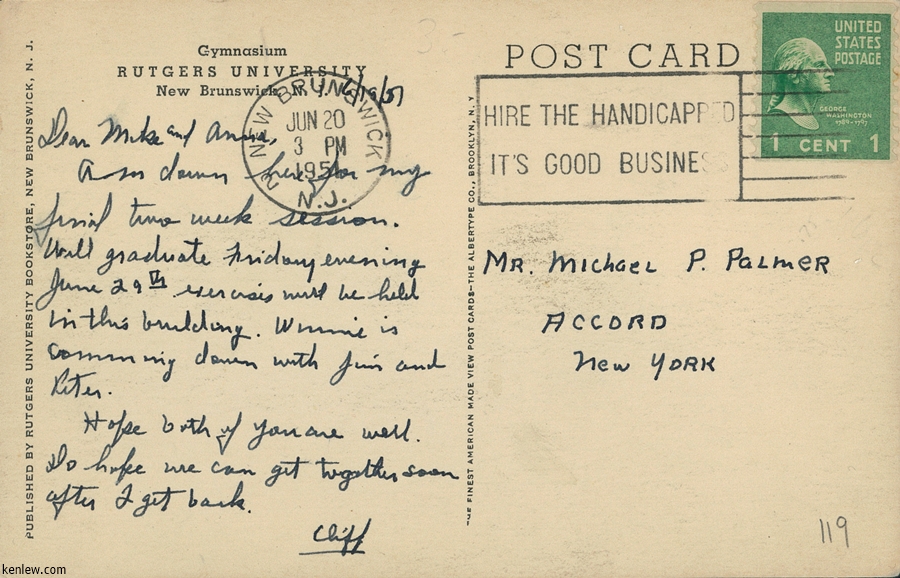 Gymnasium
RUTGERS UNIVERSITY
New Brunswick, N. J.
6/19/51
Dear Mike and Anna,
Am down here for my
final two week session.
Will graduate Friday evening
June 29th exercises will be held
in this building. Winnie is
comming down with Jim and
Peter.
Hope both of you are well.
Do hope we can get together soon
after I get back.
Cliff
PUBLISHED BY RUTGERS UNIVERSITY BOOKSTORE, NEW BRUNSWICK, N. J.
NEW BRUNSWICK
JUN 20
3 PM
1951
N.J.
THE FINEST AMERICAN MADE VIEW POST CARDS—THE ALBERTYPE CO., BROOKLYN, N. Y
POST CARD
HIRE THE HANDICAPPED
IT'S GOOD BUSINESS
UNITED
STATES
POSTAGE
GEORGE
WASHINGTON
1789-1797
1 CENT 1
MR. Michael P. Palmer
ACCORD
New York
119
kenlew.com